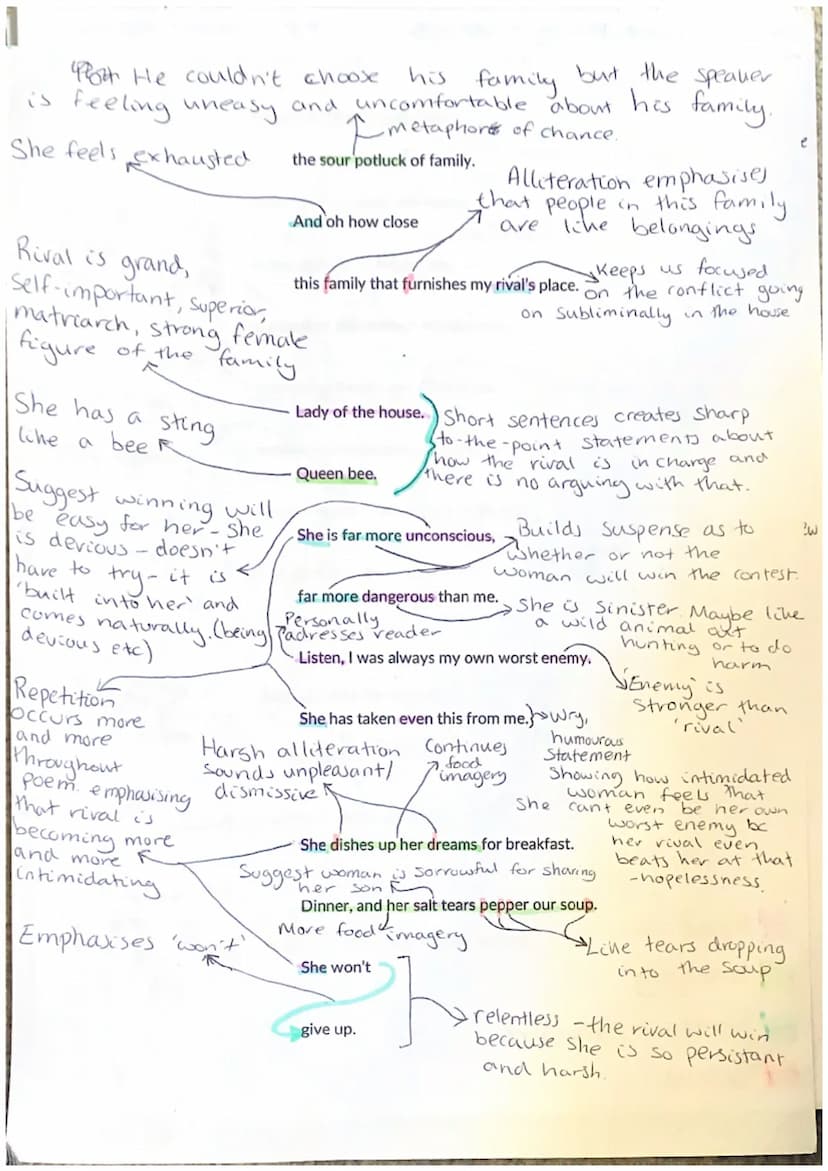 He couldn't choose his family but the speaker
is feeling uneasy and uncomfortable about his family.
metaphors of chance.
She feels exhausted
the sour potluck of family.
Alliteration emphasises
that people in this family
are like belongings
And oh how close
this family that furnishes my rival's place.
Keeps us focused
on the conflict going
on subliminally in the house
Rival is grand,
self-important, superior,
matriarch, strong female
figure of the family
Lady of the house.
She has a sting
like a bee
Queen bee.
Short sentences creates sharp
to-the-point statements about
how the rival is in charge and
there is no arguing with that.
Suggest winning will
be easy for her - she
is devious - doesn't
have to try - it is
'built into her' and
comes naturally. (being
devious etc)
She is far more unconscious,
Builds suspense as to
whether or not the
woman will win the contest.
far more dangerous than me.
She is sinister. Maybe like
a wild animal out
hunting or to do
harm
Personally
adresses reader
Listen, I was always my own worst enemy.
'Enemy' is
stronger than
'rival'
She has taken even this from me.
Wry,
humourous
statement
showing how intimidated
woman feels that
She cant even be her own
worst enemy bc
her rival even
beats her at that
- hopelessness.
Repetition
occurs more
and more
throughout
poem. emphasising
that rival is
becoming more
and more
intimidating
Harsh alliteration
sounds unpleasant/
dismissive
Continues
food
imagery
She dishes up her dreams for breakfast.
Suggest woman is sorrowful for sharing
her son
Dinner, and her salt tears pepper our soup.
More food imagery
Like tears dropping
into the soup
Emphasises 'won't'
She won't
give up.
relentless - the rival will win
because she is so persistant
and harsh.